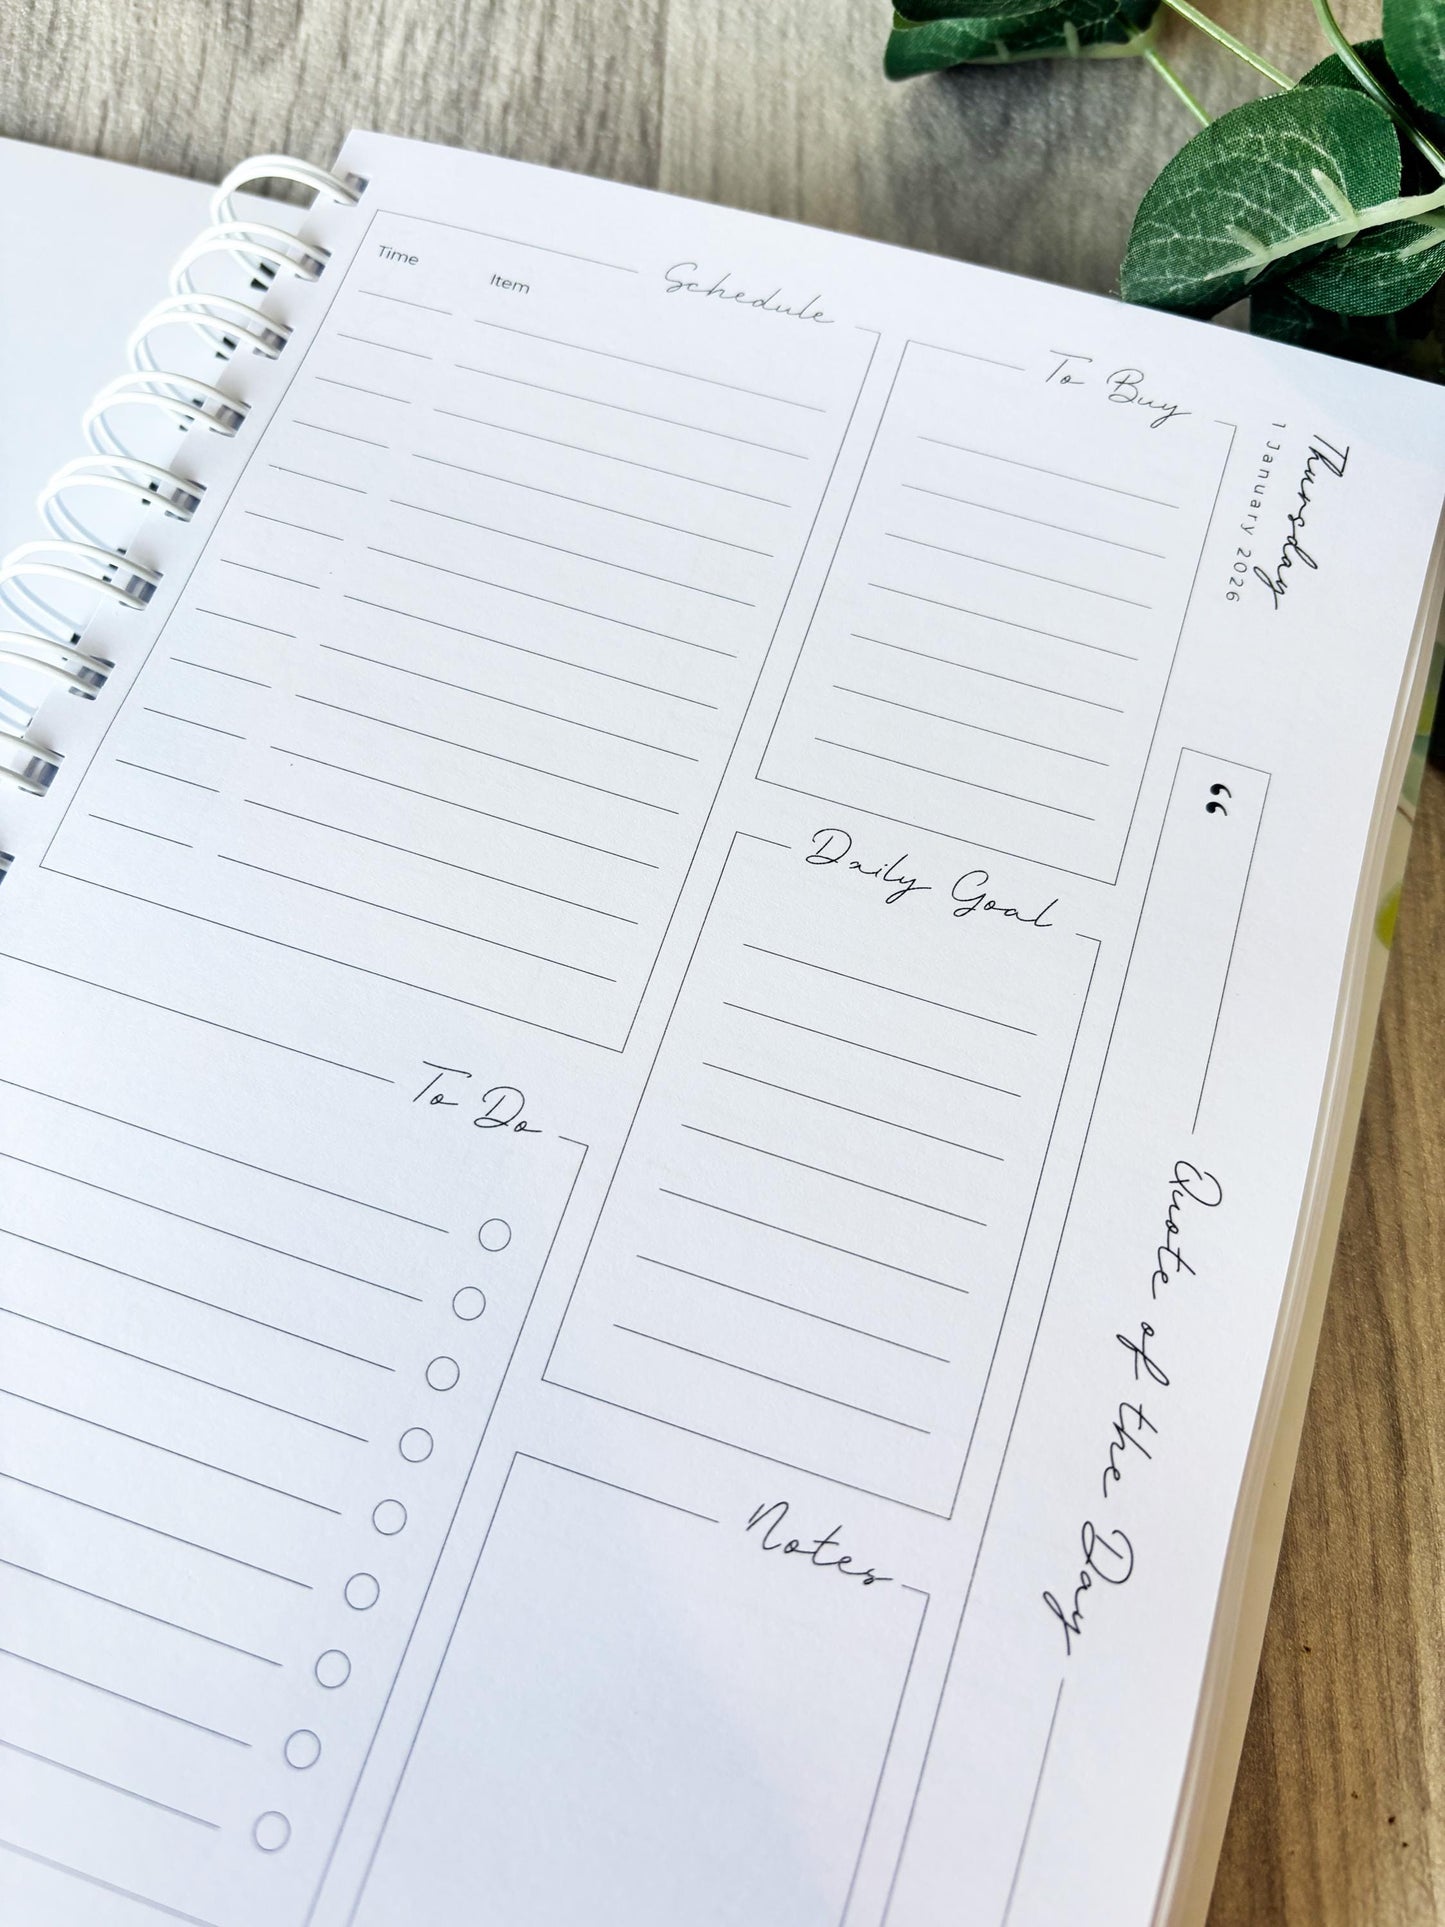 Thursday
1 January 2026
Schedule
Time Item
To Buy
“
Daily Goal
To Do
Quote of the Day
Notes